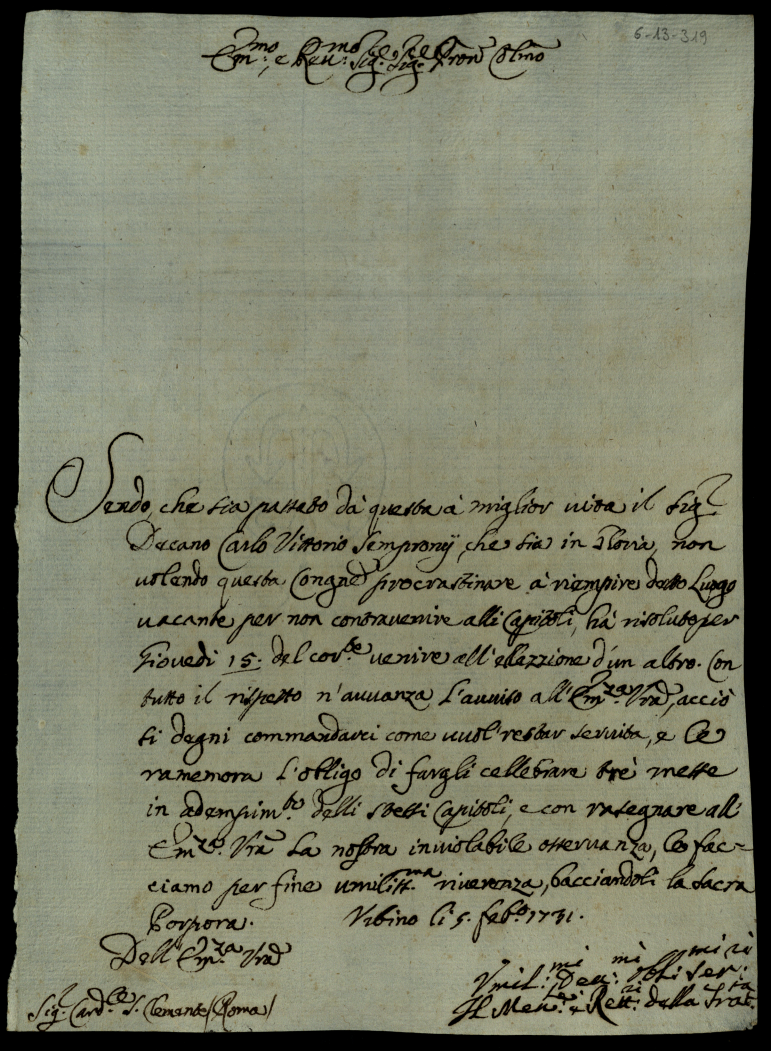 6-13-319
Em.mo, e Reu.mo Sig.e Sig.e Pron Colmo
Sendo, che sia passato dà questa à miglior uita il Sig.r
Decano Carlo Vittorio Sempronij, che sia in Gloria, non
uolendo questa Congne procrastinare à riempire detto Luogo
uacante per non contrauenire alli Capitoli, hà risoluto per
Giouedi 15. del cor.te uenire all'ellezzione d'un altro. Con
tutto il rispetto n'auuanza l'auuiso all'Em.za Vra, acciò
si degni commandarci come uuol restar seruita, e Le
ramemora l'obligo di fargli cellebrare trè messe
in adempim.to delli stessi Capitoli, e con rasegnare all'
Em.za Vra La nostra inuiolabile osseruanza, Le fac=
ciamo per fine umiliss.ma riuerenza, bacciandoli la Sacra
Porpora. Vrbino li 5. feb.o 1731.
Dell'Em.za Vra
Vmil.mi Deu.mi Obli.mi Ser.ri
Sig.r Card.le S. Clemente /Roma/
Il Men.le e Rett.ri della Frat.ta